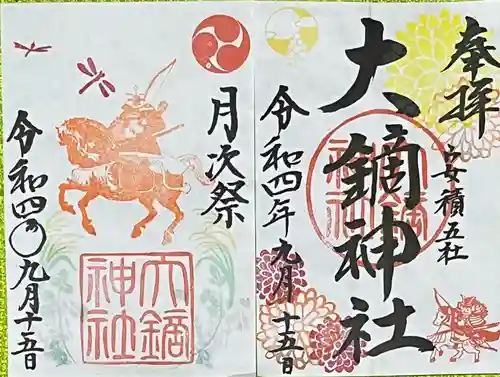 奉拝
安積五社
大鏑神社
令和四年九月十五日
大鏑神社
月次祭
令和四年九月十五日
大鏑神社